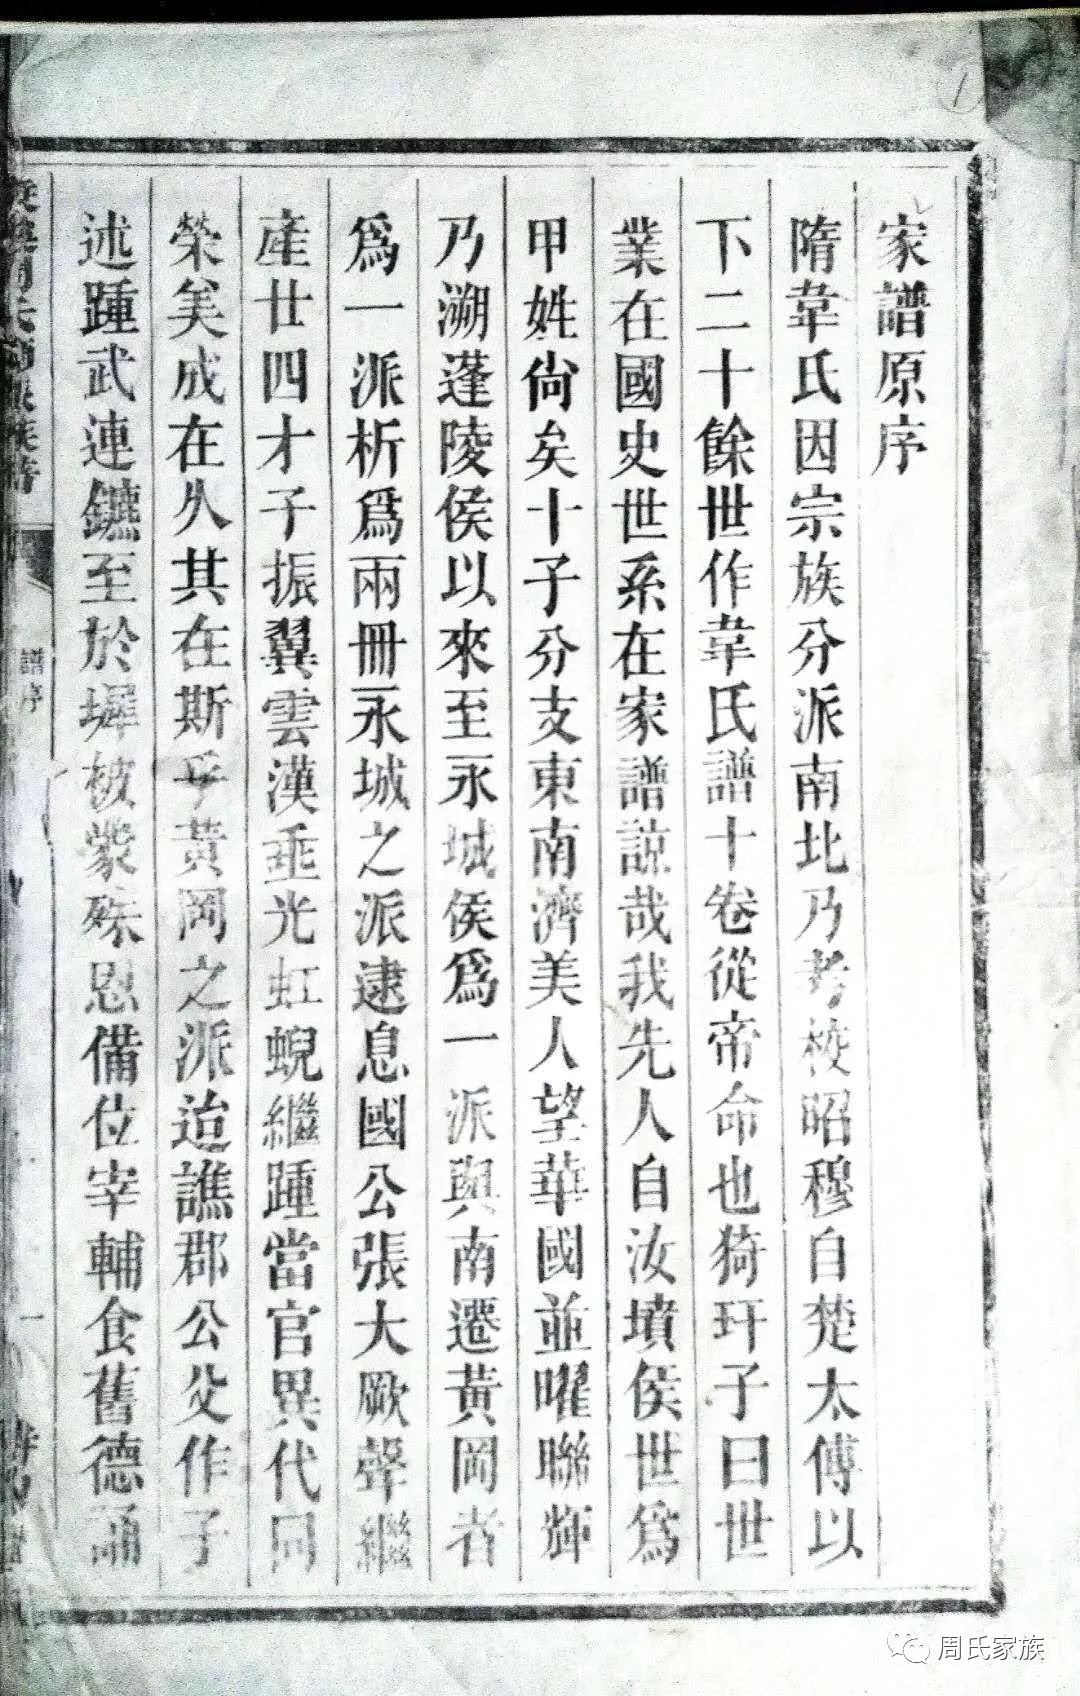 家譜原序
隋韋氏因宗族分派南北乃考校昭穆自楚太傅以
下二十餘世作韋氏譜十卷從帝命也猗玗子曰世
業在國史世系在家譜諒哉我先人自汝墳侯世爲
甲姓尙矣十子分支東南濟美人望華國並曜聯輝
乃溯蓬陵侯以來至永城侯爲一派與南遷黃岡者
爲一派析爲兩冊永城之派逮息國公張大厥聲繼
產廿四才子振翼雲漢垂光虹蜺繼踵當官異代同
榮矣成在久其在斯乎黃岡之派迨譙郡公父作子
述踵武連鑣至於墀被蒙殊恩備位宰輔食舊德誦
譜序
一
周氏家族